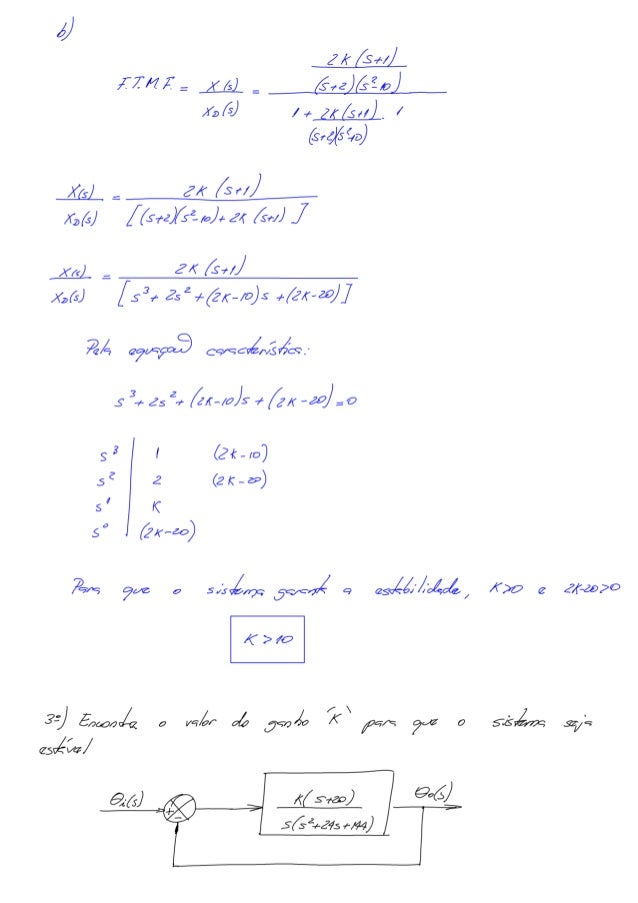 b)
F.T.M.F. = X(s)/X_D(s) = [2K(s+1)/((s+2)(s²-10))] / [1 + 2K(s+1)/((s+2)(s²-10)) . 1]
X(s)/X_D(s) = 2K(s+1) / [(s+2)(s²-10)+2K(s+1)]
X(s)/X_D(s) = 2K(s+1) / [s³+2s²+(2K-10)s+(2K-20)]
Pela equação característica:
s³+2s²+(2K-10)s+(2K-20)=0
s³ | 1 (2K-10)
s² | 2 (2K-20)
s¹ | K
s⁰ | (2K-20)
Para que o sistema garanta a estabilidade, K>0 e 2K-20>0
K>10
3º) Encontre o valor do ganho "K" para que o sistema seja
estável
θi(s) + - K(s+20)/s(s²+24s+144) θo(s)